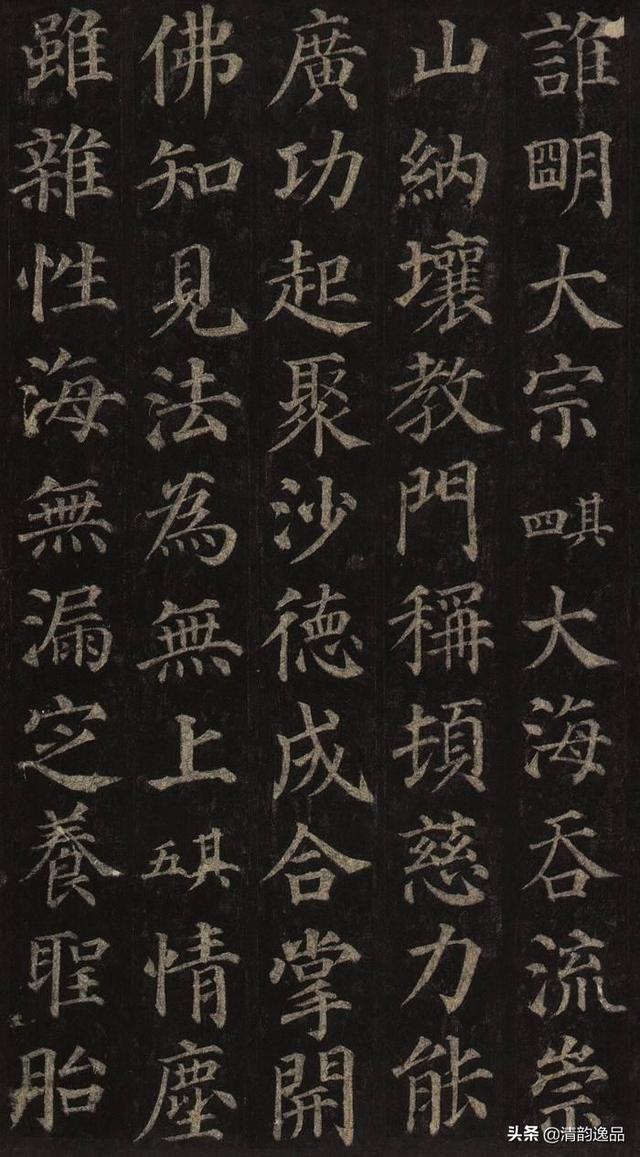 誰朙大宗其四大海吞流崇
山納壤教門稱頓慈力能
廣功起聚沙德成合掌開
佛知見法為無上其五情塵
雖雜性海無漏定養聖胎
头条 @清韵逸品